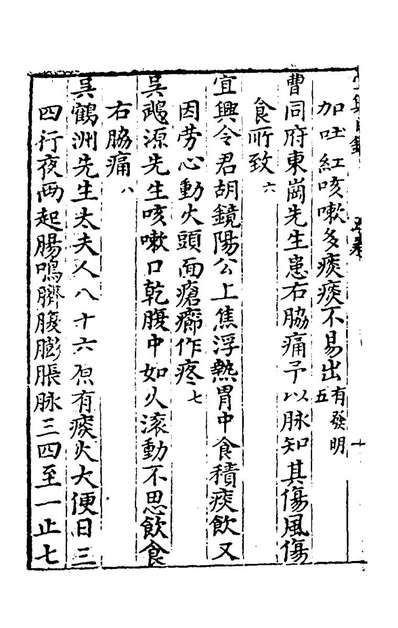 加吐紅咳嗽多痰痰不易出有發明五
曹同府東崗先生患右脇痛予以脉知其傷風傷
食所致六
宜興令君胡鏡陽公上焦浮熱胃中食積痰飲又
因劳心動火頭面瘡癤作疼七
吳 源先生咳嗽口乾腹中如火滚動不思飲食
右脇痛八
吳鶴洲先生太夫人八十六原有痰火大便日三
四行夜兩起腸鳴臍腹膨脹脉三四至一止七